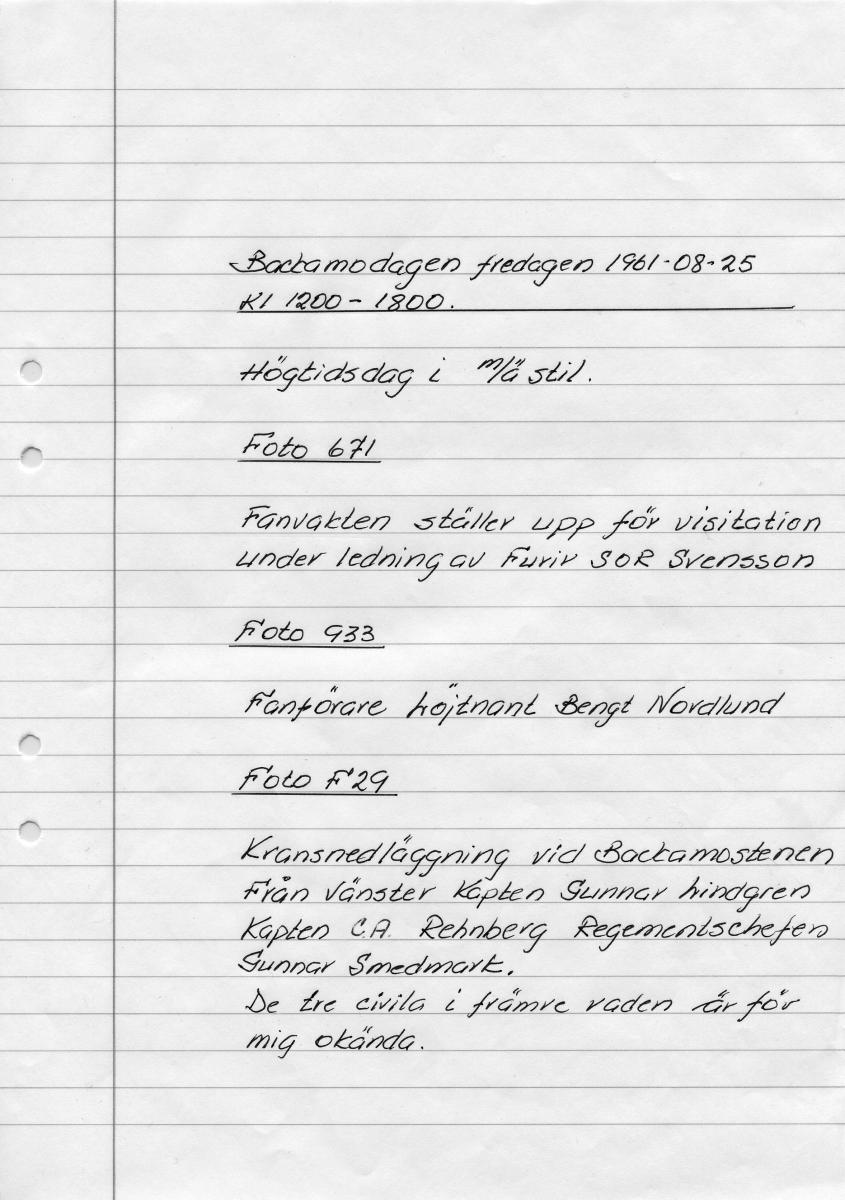 Backamodagen fredagen 1961-08-25
Kl 1200-1800.
Högtidsdag i m/ä stil.
Foto 671
Fanvakten ställer upp för visitation
under ledning av Furir SOR Svensson
Foto 933
Fanförare löjtnant Bengt Nordlund
Foto F29
Kransnedläggning vid Backamostenen
Från vänster Kapten Gunnar Lindgren
Kapten C.A. Rehnberg Regementschefen
Gunnar Smedmark.
De tre civila i främre raden är för
mig okända.